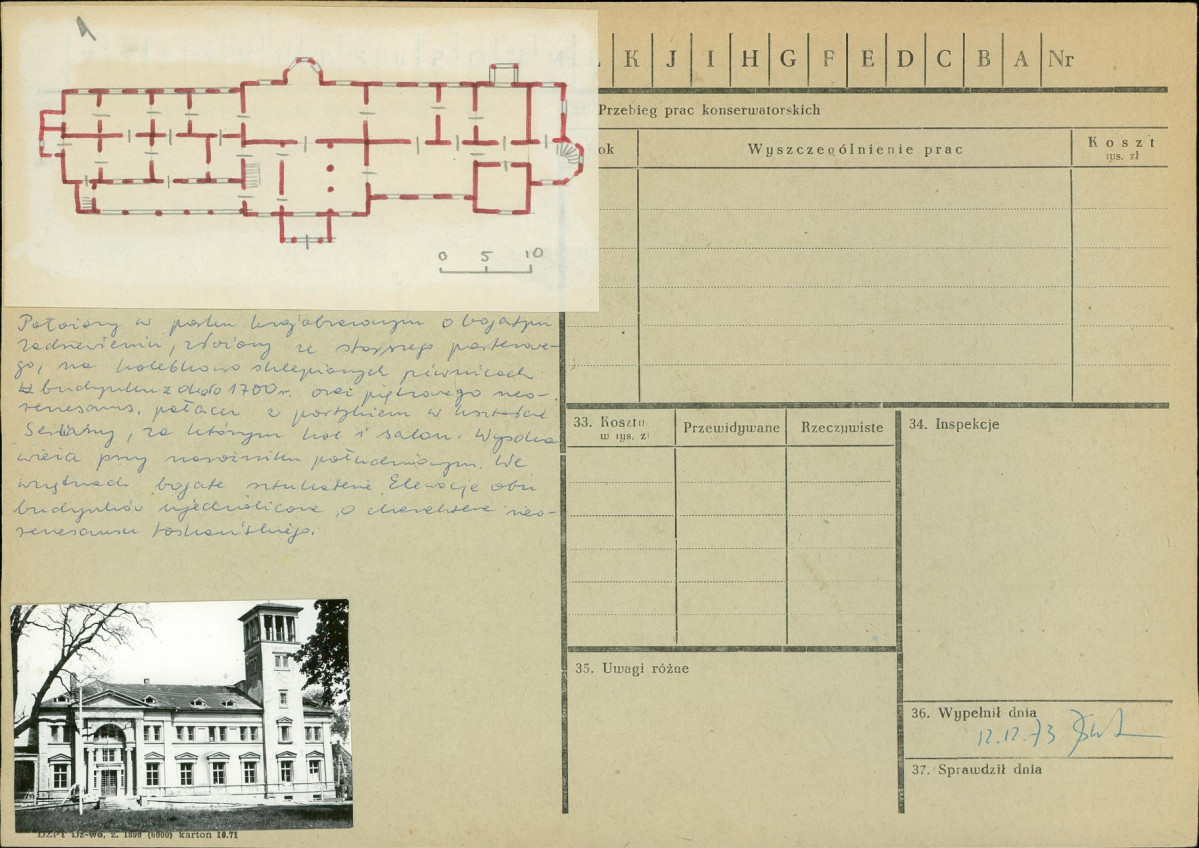 K J I H G F E D C B A Nr
Przebieg prac konserwatorskich
ok
Wyszczególnienie prac
Koszt
tys. zł
0 5 10
Położony w parku krajobrazowym o bogatym
zadrzewieniu, złożony ze starszego parterowe-
go, na kolebkowo sklepionych piwnicach
budynku z około 1700 r. oraz piętrowego neo-
renesans. pałacu z portykiem w kształcie
Serliany, za którym hol i salon. Wysoka
wieża przy narożniku południowym. We
wnętrzach bogate sztukaterie. Elewacje obu
budynków ujednolicone, o charakterze neo-
renesansu toskańskiego.
33. Koszty
w tys. zł
Przewidywane
Rzeczywiste
34. Inspekcje
35. Uwagi różne
36. Wypełnił dnia
12.12.73
37. Sprawdził dnia
DZPT Dz-wo, z. 1890 (6000) karton 10.71